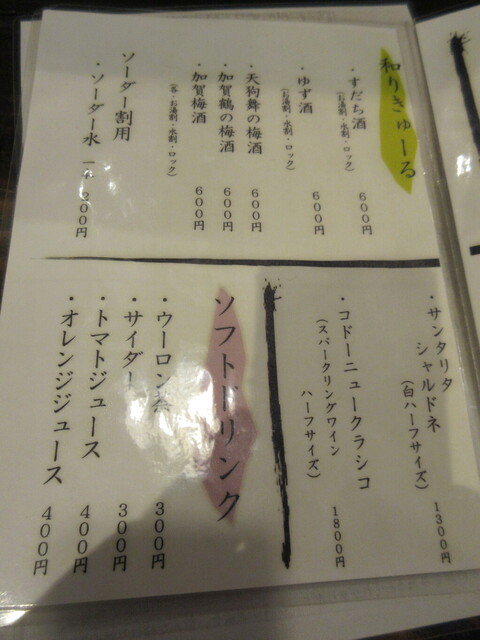 和りきゅーる
・すだち酒 600円
（お湯割・水割・ロック）
・ゆず酒 600円
（お湯割・水割・ロック）
・天狗舞の梅酒 600円
・加賀鶴の梅酒 600円
・加賀梅酒 600円
（各・お湯割・水割・ロック）
ソーダー割用
・ソーダー水 一本 200円
・サンタリタ
シャルドネ
（白ハーフサイズ） 1300円
・コドーニュークラシコ
（スパークリングワイン
ハーフサイズ） 1800円
ソフトドリンク
・ウーロン茶 300円
・サイダー 300円
・トマトジュース 400円
・オレンジジュース 400円